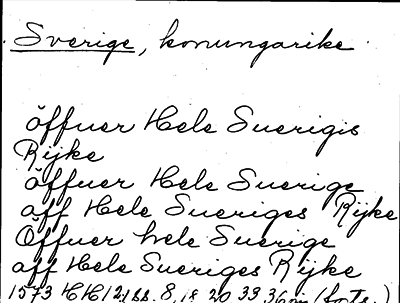 Sverige, konungarike
öffuer Hele Suerigis
Rijke
öffuer Hele Suerige
aff Hele Sueriges Rijke
Öffuer hele Suerige
aff Hele Sueriges Rijke
1573 HH 2:1 ss. 8, 18, 20, 33, 36 (forts.)